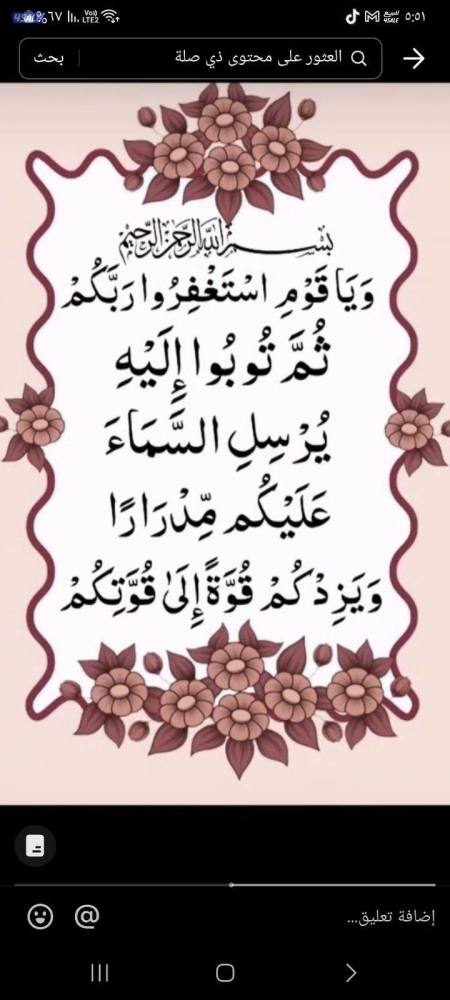 ٥:٥١
٦٧%
Vo))
LTE2
العثور على محتوى ذي صلة
بحث
بسم الله الرحمن الرحيم
وَيَا قَوْمِ اسْتَغْفِرُوا رَبَّكُمْ
ثُمَّ تُوبُوا إِلَيْهِ
يُرْسِلِ السَّمَاءَ
عَلَيْكُم مِّدْرَارًا
وَيَزِدْكُمْ قُوَّةً إِلَىٰ قُوَّتِكُمْ
إضافة تعليق...